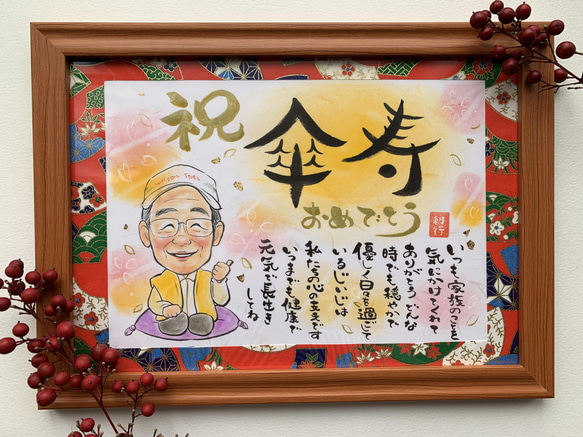 祝
傘寿
おめでとう
いつも家族のことを
気にかけてくれて
ありがとう どんな
時でも穏やかで
優しく日々を過ごして
いるじいじは
私たちの心の支えです
いつまでも健康で
元気で長生き
してね